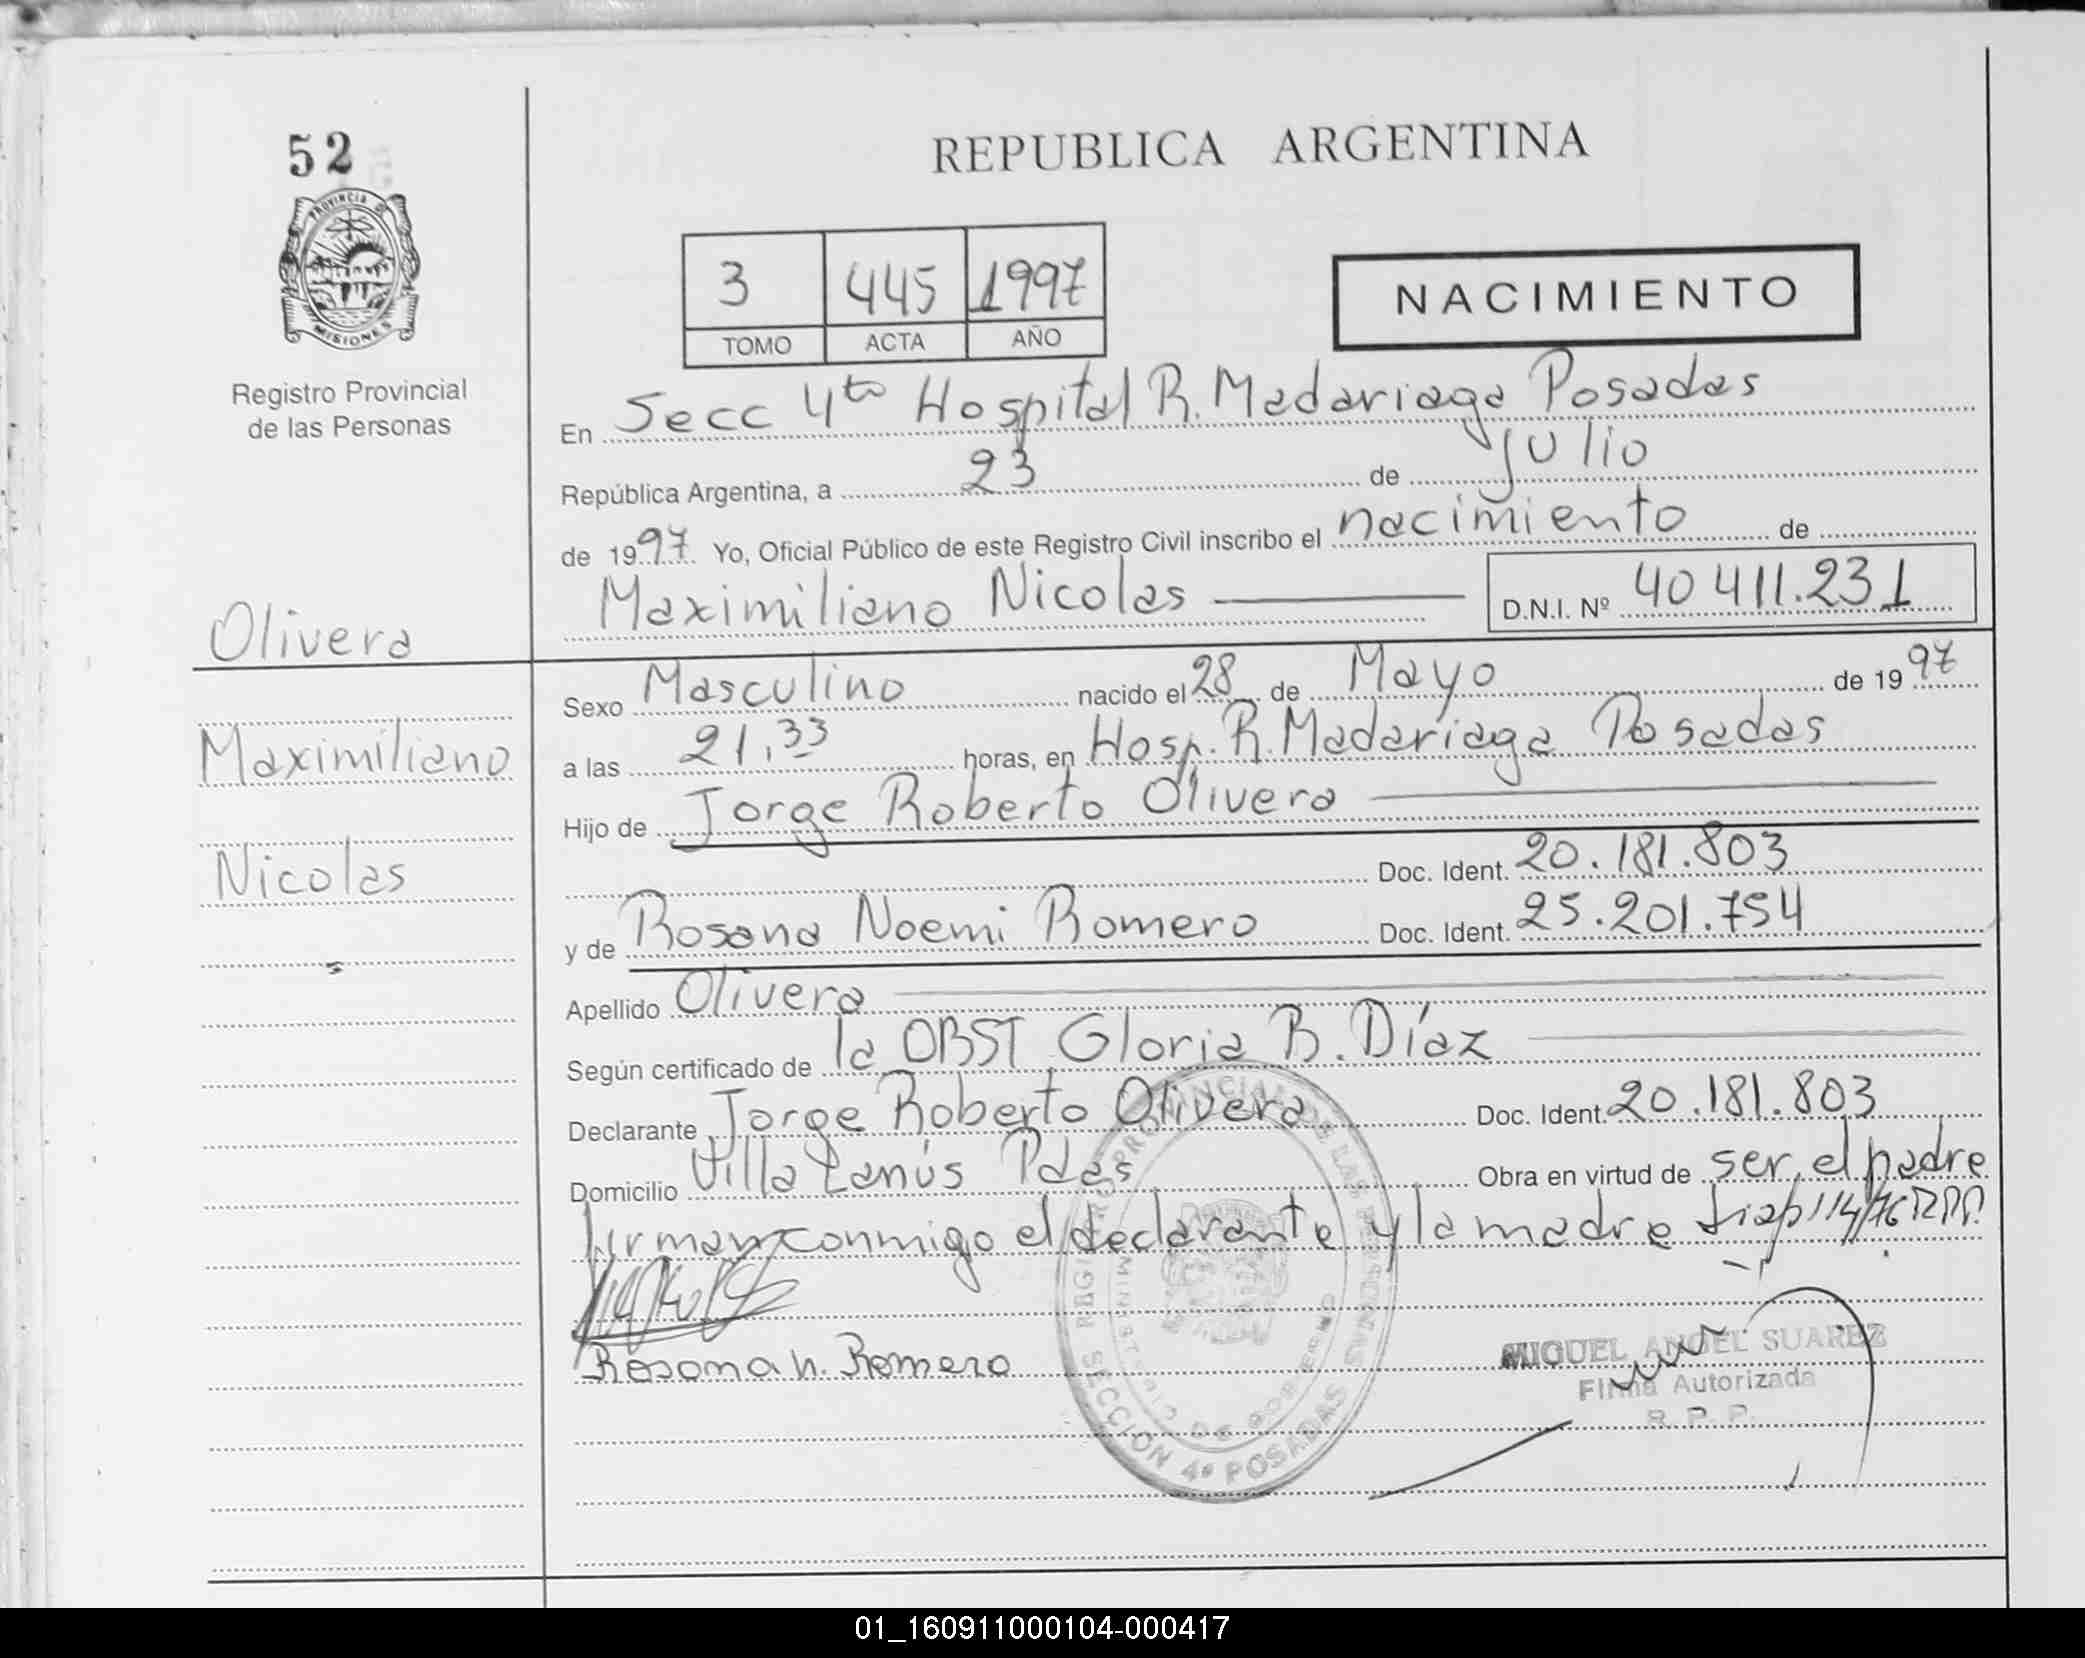 52
PROVINCIA DE
MISIONES
Registro Provincial
de las Personas
REPUBLICA ARGENTINA
3 445 1997
TOMO ACTA AÑO
NACIMIENTO
En Secc 4to Hospital R. Madariaga Posadas
República Argentina, a 23 de Julio
de 1997 Yo, Oficial Público de este Registro Civil inscribo el nacimiento de
Maximiliano Nicolas D.N.I. Nº 40 411.231
Olivera
Maximiliano
Nicolas
Sexo Masculino nacido el 28 de Mayo de 1997
a las 21,33 horas, en Hosp. R. Madariaga Posadas
Hijo de Jorge Roberto Olivera
Doc. Ident. 20.181.803
y de Rosana Noemi Romero Doc. Ident. 25.201.754
Apellido Olivera
Según certificado de la OBST Gloria B. Díaz
Declarante Jorge Roberto Olivera Doc. Ident. 20.181.803
Domicilio Villa Lanús Pdas Obra en virtud de ser el padre
firman conmigo el declarante y la madre
Rosana N. Romero
REGISTRO PROVINCIAL DE LAS PERSONAS
MINISTERIO DE GOBIERNO
SECCION 4ª POSADAS
MIGUEL ANGEL SUAREZ
Firma Autorizada
R. P. P.
01_160911000104-000417